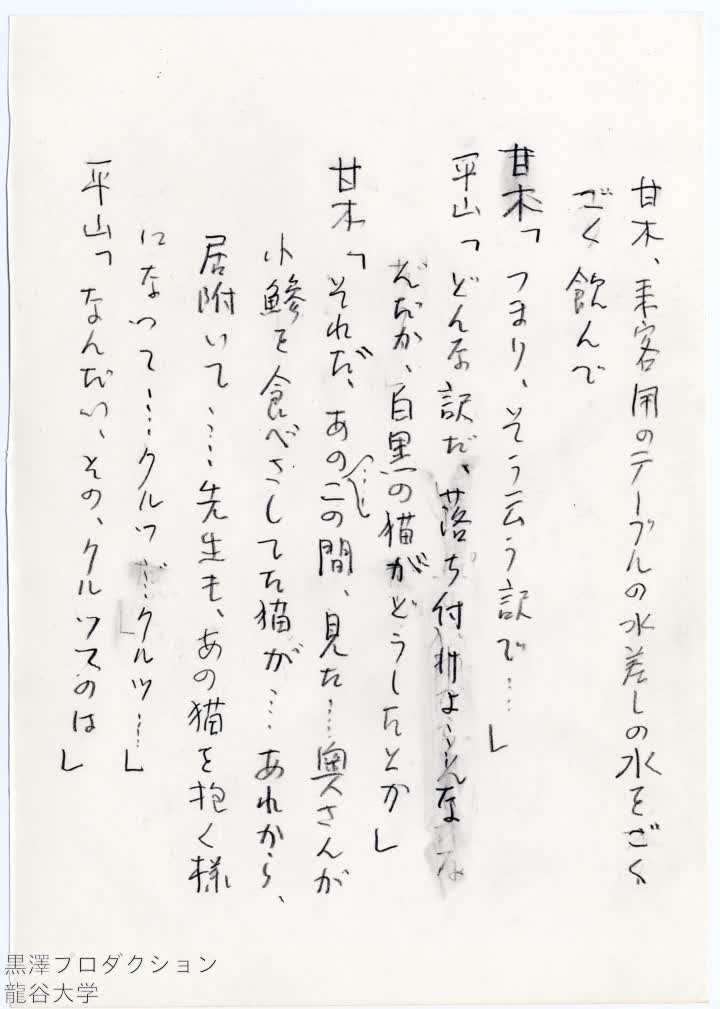 甘木、来客用のテーブルの水差しの水をごく
ごく飲んで
甘木「つまり、そう云う訳で……」
平山「どんな訳だ、落ち付けよ……なん
だか、白黒の猫がどうしたとか」
甘木「それだ、あの……この間、見た……奥さんが
小鯵を食べさしてた猫が……あれから、
居附いて……先生も、あの猫を抱く様
になって……クルツが……クルツ……」
平山「なんだい、その、クルツてのは」
黒澤プロダクション
龍谷大学